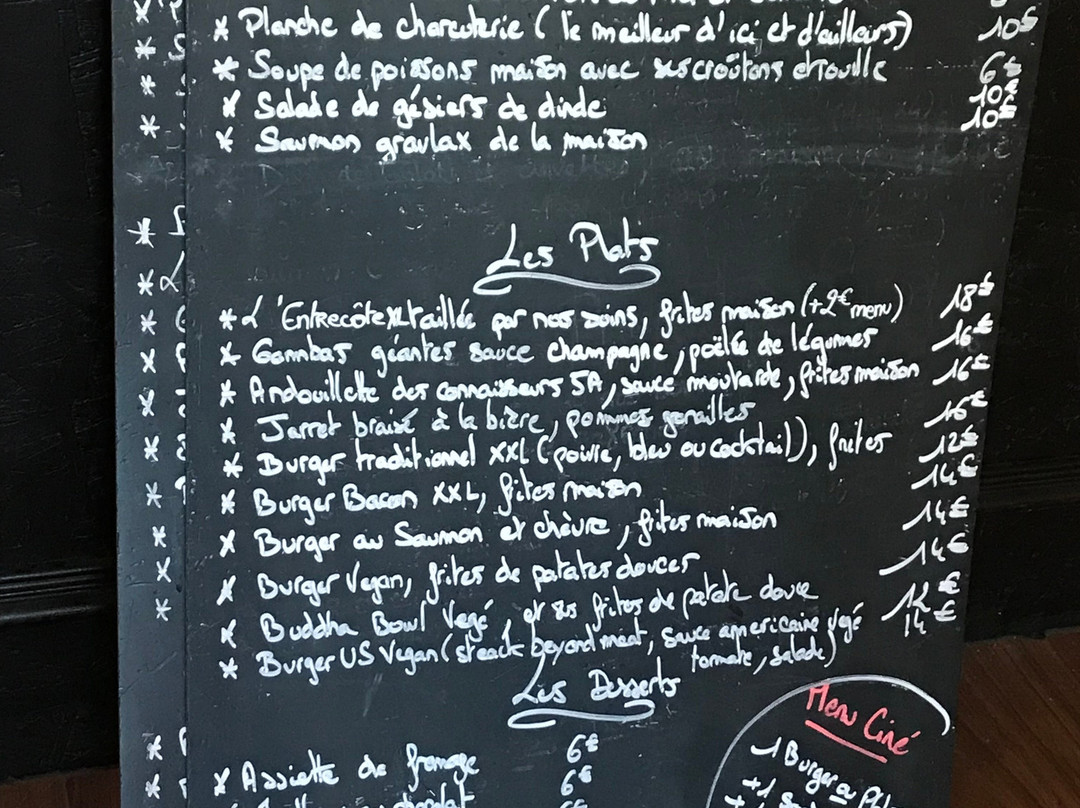 * Planche de charcuterie (le meilleur d'ici et d'ailleurs) 10€
* Soupe de poissons maison avec ses croûtons et rouille 6€
* Salade de gésiers de dinde 10€
* Saumon gravlax de la maison 10€
Les Plats
* L'Entrecôte XL taillée par nos soins, frites maison (+2€ menu) 18€
* Gambas géantes sauce champagne, poëlée de légumes 16€
* Andouillette des connaisseurs 5A, sauce moutarde, frites maison 16€
* Jarret braisé à la bière, pommes grenailles 16€
* Burger traditionnel XXL (poivre, bleu ou cocktail), frites 12€
* Burger Bacon XXL, frites maison 14€
* Burger au Saumon et chèvre, frites maison 14€
* Burger Vegan, frites de patates douces 14€
* Buddha Bowl Vegé, et ses frites de patate douce 12€
* Burger US Vegan (steack beyond meat, sauce americaine végé 14€
tomate, salade)
Les Desserts
* Assiette de fromage 6€
6€
Menu Ciné
1 Burger